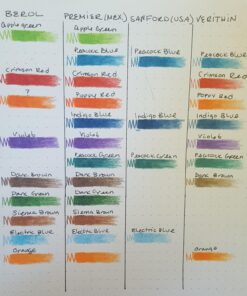 BEROL PREMIER (MEX) SANFORD (USA) VERITHIN
Apple Green Apple Green
Peacock Blue Peacock Blue Peacock Blue
Crimson Red Crimson Red Crimson Red
? Poppy Red Poppy Red
Indigo Blue Indigo Blue Indigo Blue
Violet Violet Violet
Peacock Green Peacock Green Peacock Green
Dark Brown Dark Brown Dark Brown
Dark Green Dark Green
Sienna Brown Sienna Brown
Electric Blue Electric Blue Electric Blue
Orange Orange Orange